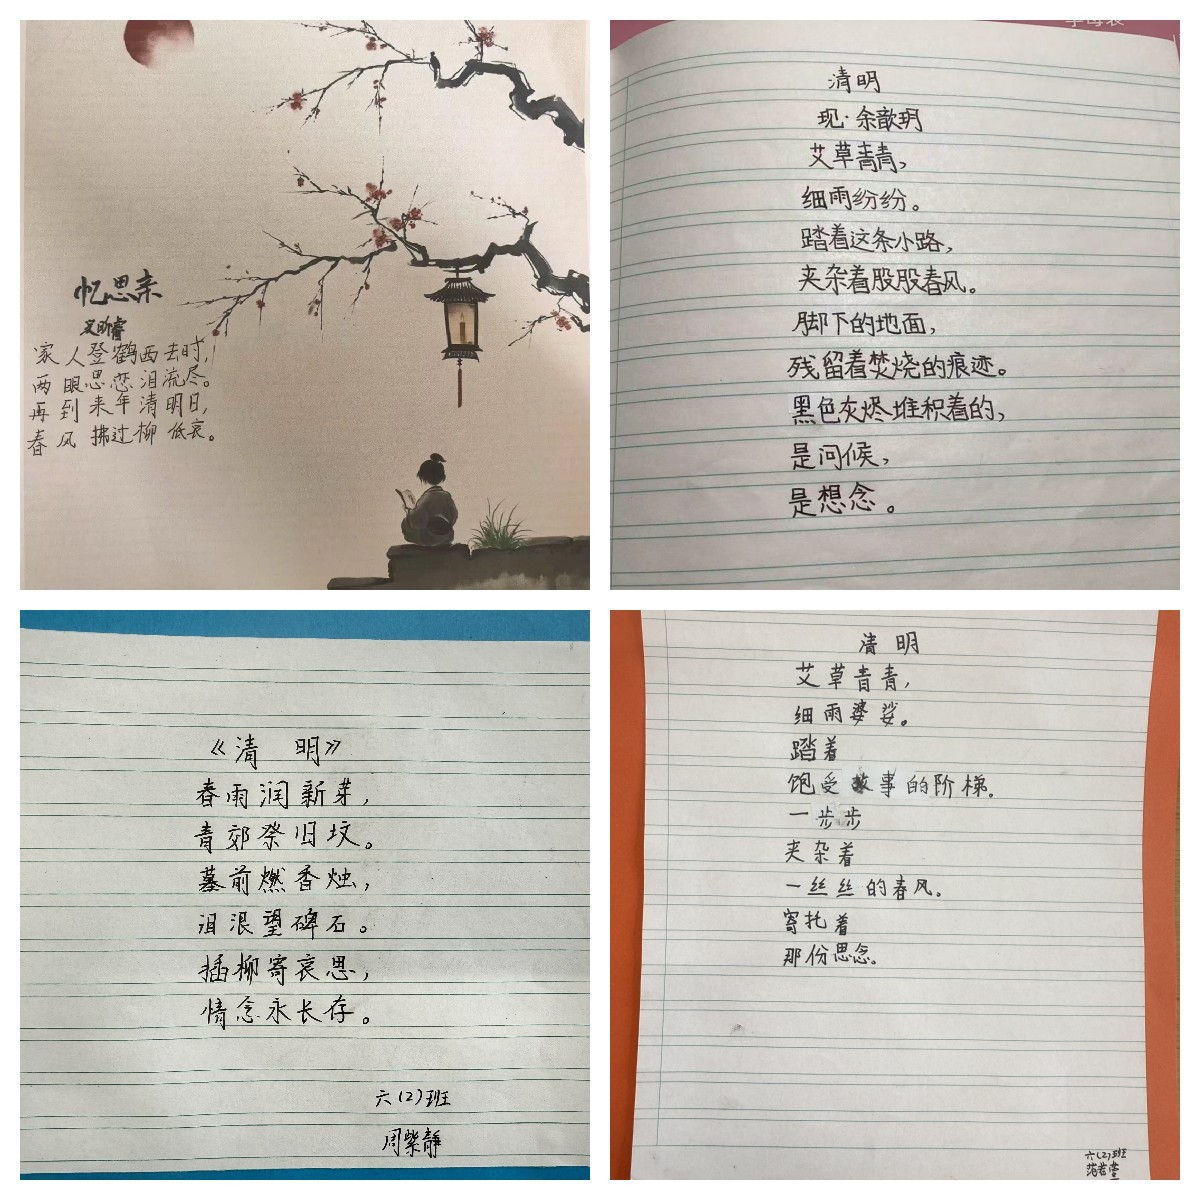 忆思亲
家人登鹤西去时，
两眼思恋泪流尽。
再到来年清明日，
春风拂过柳低哀。
清明
现·余歆玥
艾草青青，
细雨纷纷。
踏着这条小路，
夹杂着股股春风。
脚下的地面，
残留着焚烧的痕迹。
黑色灰烬堆积着的，
是问候，
是想念。
《清 明》
春雨润新芽，
青郊祭旧坟。
墓前燃香烛，
泪浪望碑石。
插柳寄哀思，
情念永长存。
六（2）班
周紫静
清明
艾草青青，
细雨婆娑。
踏着
饱受故事的阶梯。
一步步
夹杂着
一丝丝的春风。
寄托着
那份思念。
六（2）班